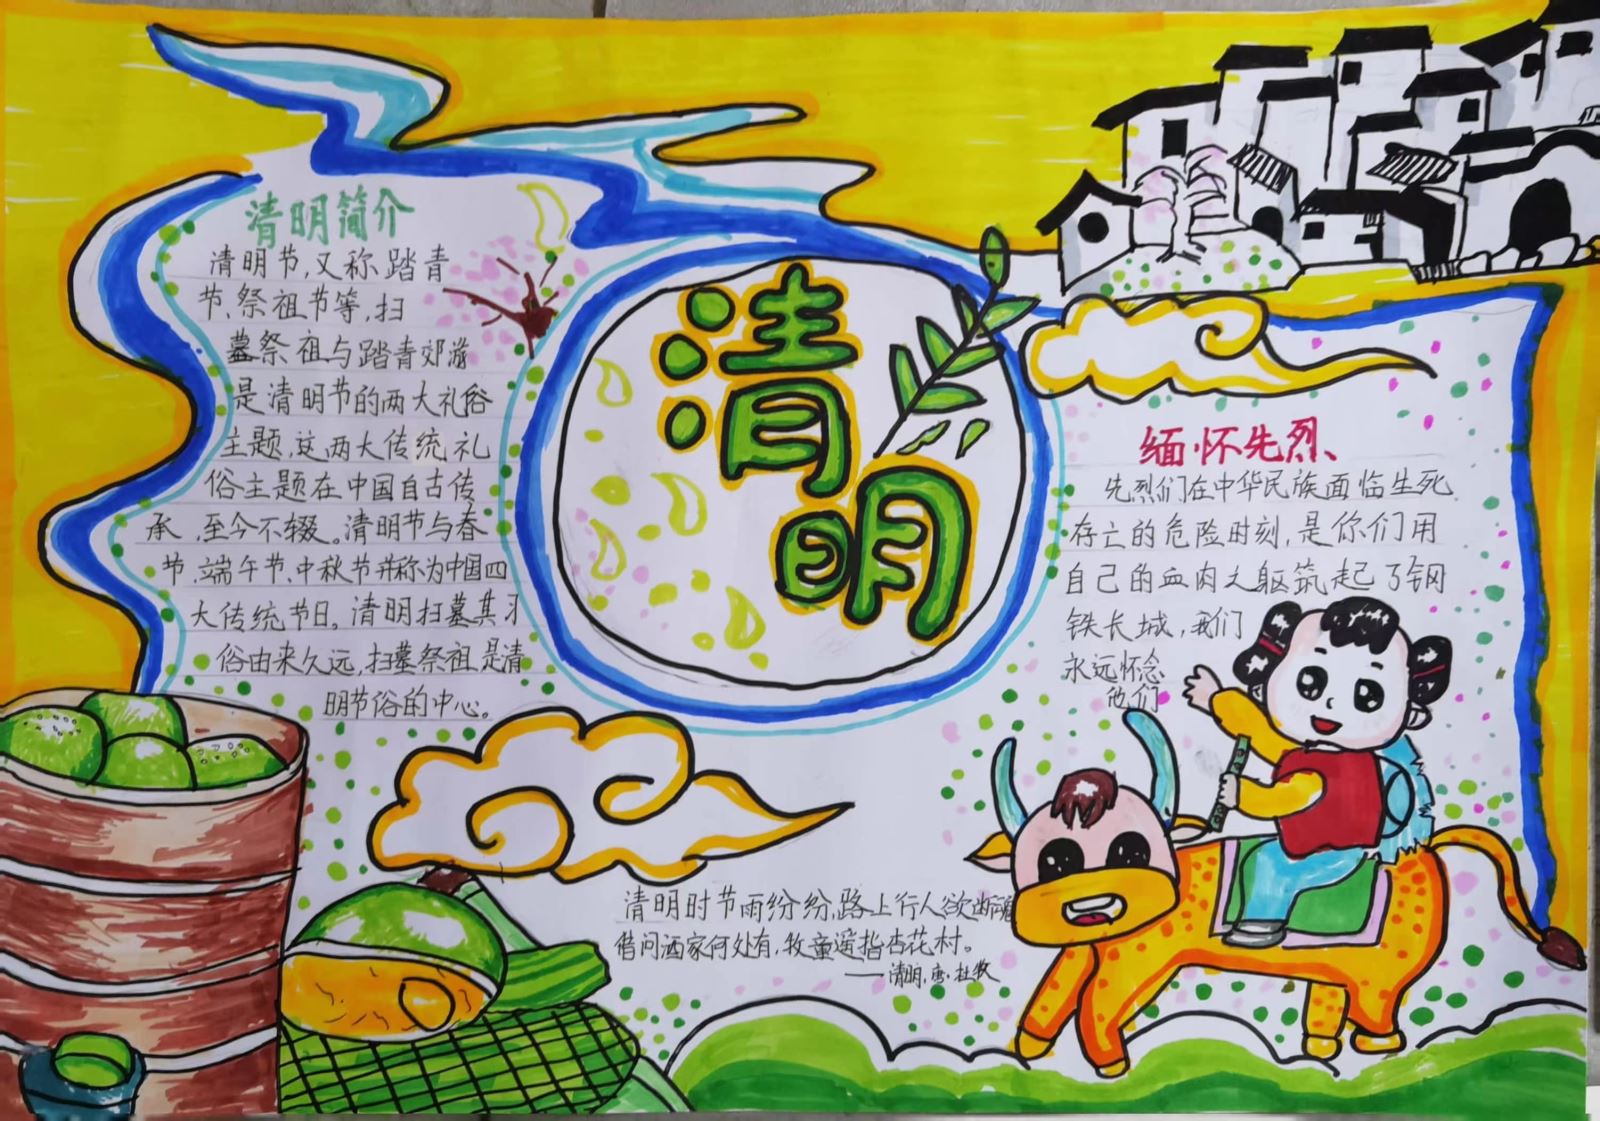 清明简介
清明节,又称踏青
节、祭祖节等,扫
墓祭祖与踏青郊游
是清明节的两大礼俗
主题,这两大传统礼
俗主题在中国自古传
承,至今不辍。清明节与春
节、端午节、中秋节并称为中国四
大传统节日。清明扫墓其习
俗由来久远,扫墓祭祖是清
明节俗的中心。
清
明
缅怀先烈、
先烈们在中华民族面临生死
存亡的危险时刻,是你们用
自己的血肉之躯筑起了钢
铁长城,我们
永远怀念
他们
清明时节雨纷纷,路上行人欲断魂
借问酒家何处有,牧童遥指杏花村。
——清明·唐·杜牧